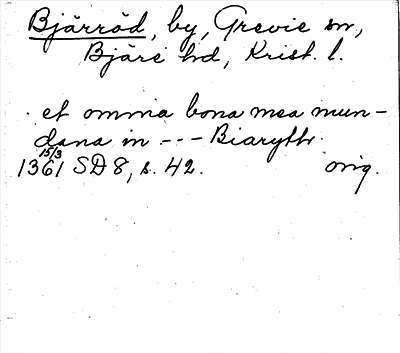 Bjärröd, by, Grevie sn,
Bjäre hd, Krist. l.
et omnia bona mea mun-
dana in --- Biaryth.
15/3
1361 SD 8, s. 42. orig.